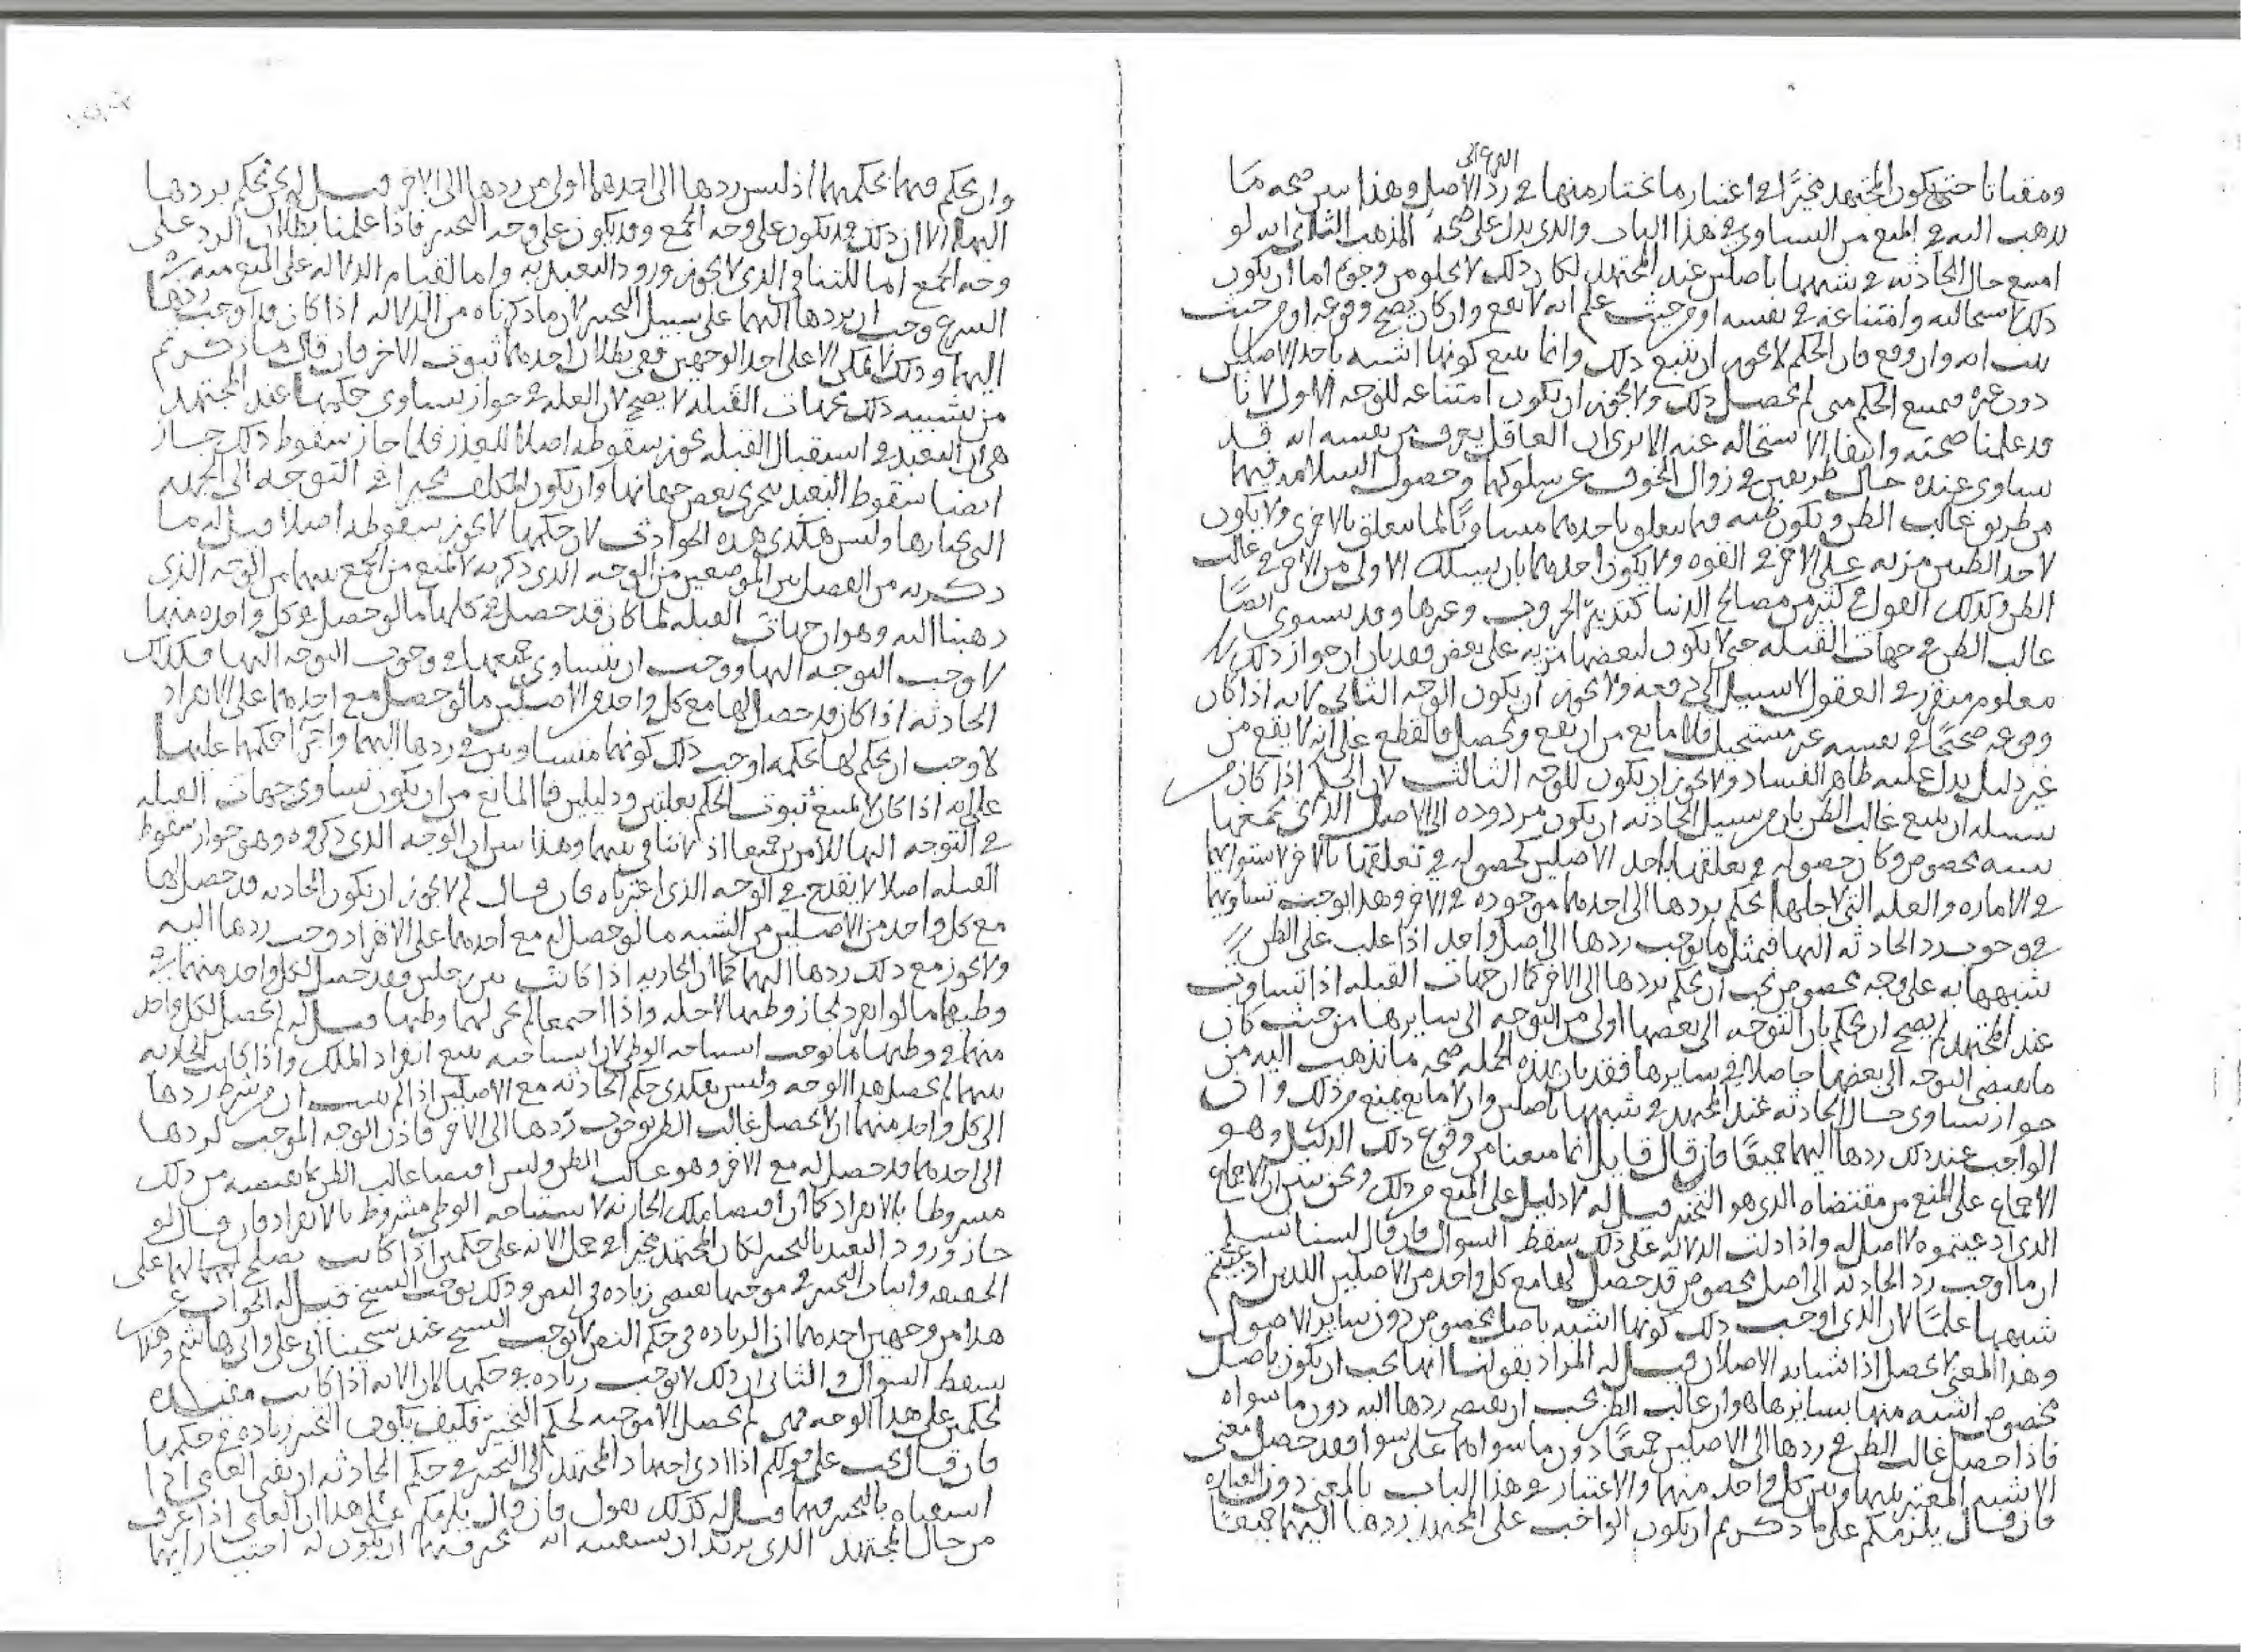 الفرع الى
ومقباتا حتى يكون المجتهد مخيرًا في اعتبار ما يختار منها في ردّ الاصل وهذا يبين صحة ما
يذهب اليه في المنع من التساوي في هذا الباب والذي يدل على صحة المذهب الثاني انه لو
امتنع حال الحادثة في شبهها باصلين عند المجتهد لكان ذلك لا يخلو من وجوه اما ان يكون
ذلك لاستحالته وامتناعه في نفسه او من حيث علم انه لا يقع وان كان يصح وقوعه او من حيث
يثبت انه وان وقع فان الحكم لا يجوز ان يتبع ذلك وانما يتبع كونها اشبه باحد الاصلين
دون غيره فيمتنع الحكم متى لم يحصل ذلك ولا يجوز ان يكون امتناعه للوجه الاول لانا
قد علمنا صحته وانتفاء الاستحالة عنه الا ترى ان العاقل يعرف من نفسه انه قد
يتساوى عنده حال طريقين في زوال الخوف عن سلوكهما وحصول السلامة فيهما
من طريق غالب الظن ويكون ظنه فيما يتعلق باحدهما مساويًا لما يتعلق بالاخرى ولا يكون
لاحد الظنين مزية على الاخر في القوة ولا يكون احدهما بان يسلك الاولى من الاخر في غالب
الظن وكذلك القول في كثير من مصالح الدنيا كتدبير الحروب وغيرها وقد يستوي ايضًا
غالب الظن في جهات القبلة حتى لا يكون لبعضها مزية على بعض فقد بان ان جواز ذلك
معلوم متقرر في العقول لا سبيل الى دفعه ولا يجوز ان يكون الوجه الثاني لانه اذا كان
وقوعه صحيحًا في نفسه غير مستحيل فلا مانع من ان يقع ويحصل فالقطع على انه لا يقع من
غير دليل يدل عليه ظاهر الفساد ولا يجوز ان يكون للوجه الثالث لان الحكم اذا كان من
سبيله ان يتبع غالب الظن بان من سبيل الحادثة ان يكون مردودة الى الاصل الذي يجمعها
شبه مخصوص وكان حصوله في تعلقها باحد الاصلين كحصوله في تعلقها بالاخر لاستوائهما
في الامارة والعلة التي لاجلها يحكم بردها الى احدهما موجودة في الاخر وهذا يوجب تساويهما
في وجوب رد الحادثة اليهما فمثل ما يوجب ردها الى اصل واحد اذا غلب على الظن
شبهها به على وجه مخصوص يجب ان يحكم بردها الى الاخر كما ان جهات القبلة اذا تساوت
عند المجتهد لم يصح ان يحكم بان التوجه الى بعضها اولى من التوجه الى سايرها من حيث كان
ما يقتضي التوجه الى بعضها حاصلا في سايرها فقد بان بهذه الجملة صحة ما نذهب اليه من
جواز تساوى حال الحادثة عند المجتهد في شبهها باصلين وان لا مانع يمنع من ذلك وان
الواجب عند ذلك ردها اليهما جميعًا فان قال قايل انما منعنا من وقوع ذلك الدليل وهو
الاجماع على المنع من مقتضاه الذي هو التخيير قيل له لا دليل على المنع من ذلك ونحن نبين ان الاجماع
الذي ادعيتموه لا اصل له واذا دلت الدلالة على ذلك سقط السوال فان قال لسنا نسلم
ان ما اوجب رد الحادثة الى اصل مخصوص قد حصل لها مع كل واحد من الاصلين اللذين ادعيتم
شبهها عليمًا لان الذي اوجب ذلك كونها اشبه باصل مخصوص دون ساير الاصول
وهذا المعنى لا يحصل اذا تشابه الاصلان قيل له المراد بقولنا انها يجب ان يكون باصل
مخصوص اشبه منها بسايرها هو ان غالب الظن يجب ان يقتضي ردها اليه دون ما سواه
فاذا حصل غالب الظن في ردها الى الاصلين جميعًا دون ما سواهما على سوا فقد حصل معنى
الاشبه المعتبر بينها وبين كل واحد منهما والاعتبار في هذا الباب بالمعنى دون العبارة
فان قال يلزمكم على ما ذكرتم ان يكون الواجب على المجتهد ردها اليهما جميعًا
وان يحكم فيها بحكمهما اذ ليس ردها الى احدهما اولى من ردها الى الاخر قيل له نحن نحكم بردها
اليهما الا ان ذلك قد يكون على وجه الجمع وقد يكون على وجه التخيير فاذا علمنا بطلان الرد على
وجه الجمع اما للتنافي الذي لا يجوز ورود التعبد به واما لقيام الدلالة على المنع منه
السرع وجب ان يردها اليهما على سبيل التخيير لان ما ذكرناه من الدلالة اذا كان قد اوجب ردها
اليهما وذلك لا يمكن الا على احد الوجهين ففي بطلان احدهما ثبوت الاخر فان قال ما ذكرتم
من تشبيه ذلك بجهات القبلة لا يصح لان العلة في جواز تساوى حكمها عند المجتهد
هي ان التعبد في استقبال القبلة يجوز سقوطه اصلا للعذر فلما جاز سقوط ذلك جاز
ايضا سقوط التعبد بتحرى بعض جهاتها وان يكون المكلف مخيرا في التوجه الى الجهة
التي يختارها وليس هكذى هذه الحوادث لان حكمها لا يجوز سقوطه اصلا قيل له ما
ذكرته من الفصل بين الموضعين من الوجه الذي ذكرته لا يمنع من الجمع بينهما من الوجه الذي
ذهبنا اليه وهو ان جهات القبلة لما كان قد حصل في كلها ما لو حصل في كل واحدة منها
لاوجب التوجه اليها ووجب ان يتساوى جميعها في وجوب التوجه اليها فكذلك
الحادثة اذا كان قد حصل لها مع كل واحد من الاصلين ما لو حصل مع احدهما على الانفراد
لاوجب ان يحكم لها بحكمه اوجب ذلك كونهما متساويين في ردها اليهما واجرا حكمهما عليها
على انه اذا كان لا يمتنع ثبوت الحكم بعلتين ودليلين فما المانع من ان يكون تساوى جهات القبلة
في التوجه اليها للامرين جميعا اذ لا تنافي بينهما وهذا يبين ان الوجه الذي ذكروه وهو جواز سقوط
القبلة اصلا لا يقدح في الوجه الذي اعتبرناه فان قال لم لا يجوز ان يكون الحادثة قد حصل لها
مع كل واحد من الاصلين من الشبه ما لو حصل له مع احدهما على الانفراد وجب ردها اليه
ولا يجوز مع ذلك ردها اليهما كما ان الجارية اذا كانت بين رجلين وقد حصل لكل واحد منهما في
وطيها ما لو انفرد لجاز وطيها لاجله واذا اجتمعا لم يجز لهما وطيها قيل له لم يحصل لكل واحد
منهما في وطيها ما يوجب استباحة الوطى لان استباحته يتبع انفراد الملك واذا كانت الجارية
بينهما لم يحصل هذا الوجه وليس هكذى حكم الحادثة مع الاصلين اذا لم يثبت ان من شرط ردها
الى كل واحد منهما ان لا يحصل غالب الظن بوجوب ردها الى الاخر فاذن الوجه الموجب لردها
الى احدهما قد حصل له مع الاخر وهو غالب الظن وليس اقتضا غالب الظن لما يقتضيه من ذلك
مشروطا بالانفراد كما ان اقتضا ملك الجارية لاستباحة الوطى مشروط بالانفراد فان قال لو
جاز ورود التعبد بالتخيير لكان المجتهد مخيرا في حمل الاية على حكمين اذا كانت يصلح لهما على
الحقيقة واثبات التخيير في موجبها يقتضي زيادة في النص وذلك يوجب النسخ قيل له الجواب عن
هذا من وجهين احدهما ان الزيادة في حكم النص لا توجب النسخ عند شيخينا ابي علي وابي هاشم وهذا
يسقط السوال والثاني ان ذلك لا يوجب زيادة في حكمها لان الاية اذا كانت مفيدة
لحكمين على هذا الوجه فهي لم يحصل الا موجبة لحكم التخيير فكيف يكون التخيير زيادة في حكمها
فان قال يجب على قولكم اذا ادى اجتهاد المجتهد الى التخيير في حكم الحادثة ان يفتى العامي اذا
استفتاه بالتخيير فيها قيل له كذلك نقول فان قال يلزمكم على هذا ان العامي اذا عرف
من حال المجتهد الذي يريد ان يستفتيه انه مخير فيها ان يكون له اختيار ايهما